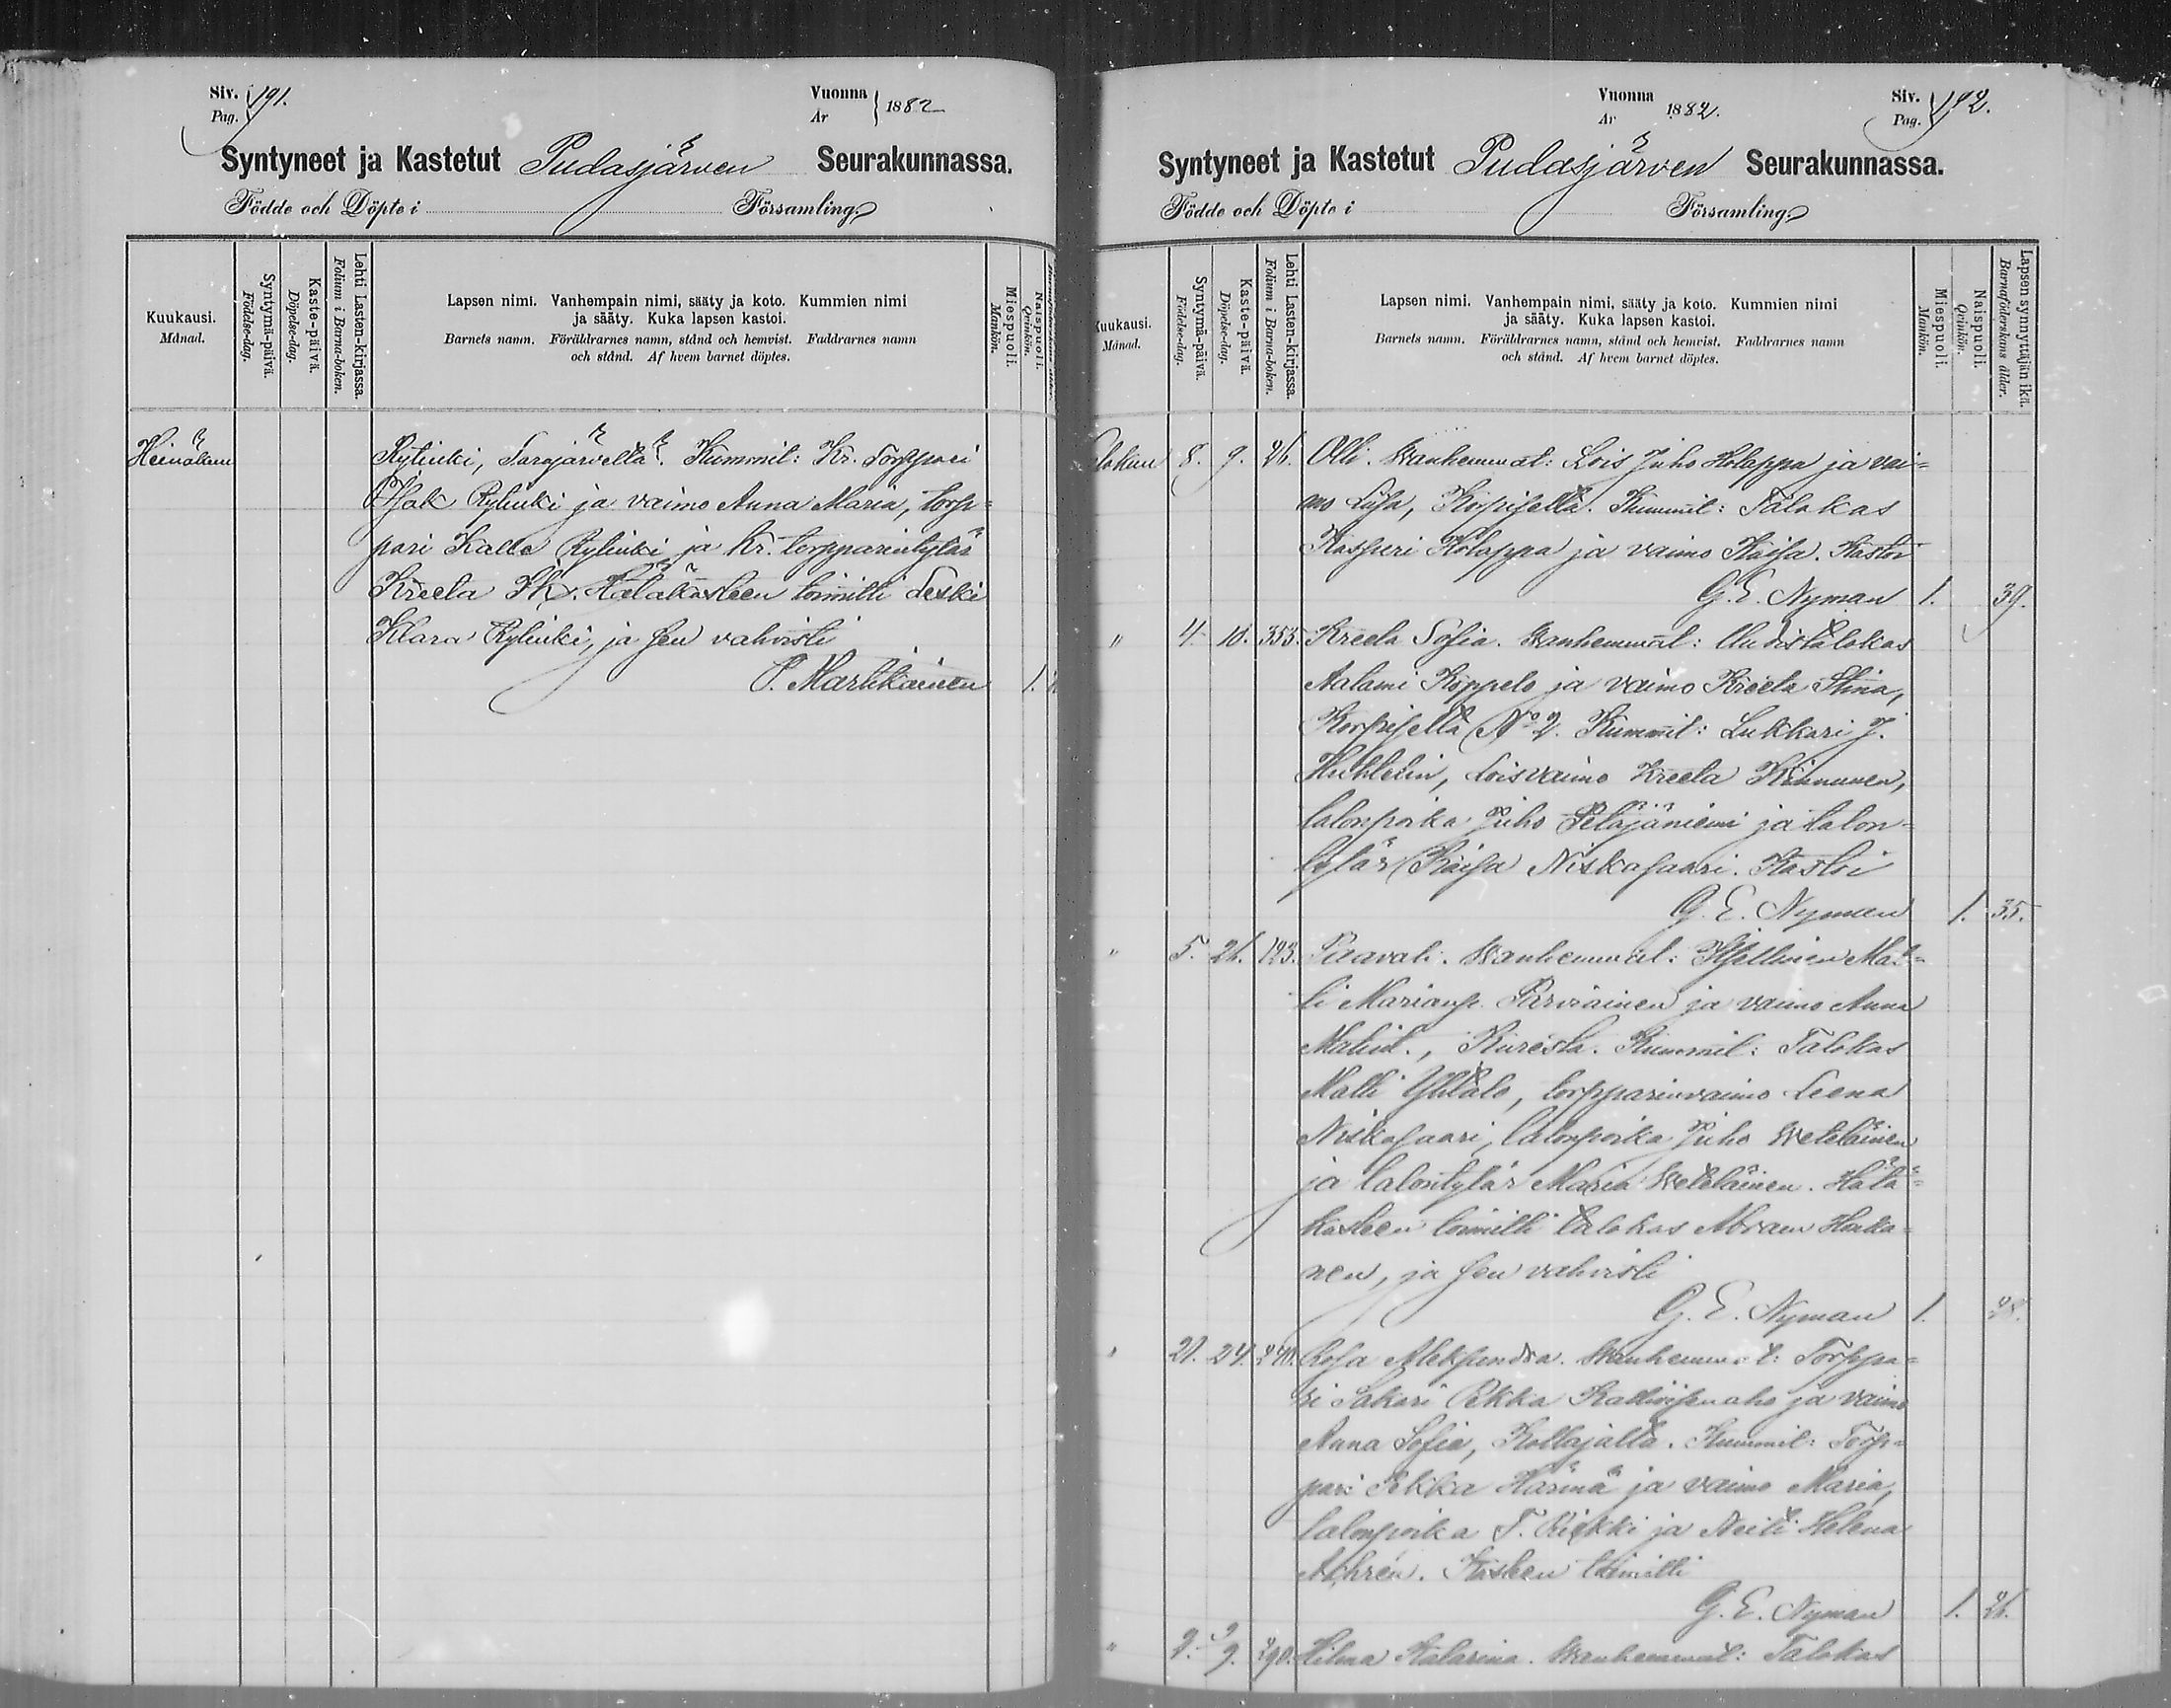 Siv. 191.
Pag.
Vuonna 1882
Ar
Syntyneet ja Kastetut Pudasjärven Seurakunnassa.
Födde och Döpte i Församling
Kuukausi.
Månad.
Syntymä-päivä.
Födelse-dag.
Kaste-päivä.
Döpelse-dag.
Lehti Lasten-kirjassa.
Folium i Barna-boken.
Lapsen nimi. Vanhempain nimi, sääty ja koto. Kummien nimi
ja sääty. Kuka lapsen kastoi.
Barnets namn. Föräldrarnes namn, stånd och hemvist. Faddrarnes namn
och stånd. Af hvem barnet döptes.
Miespuoli.
Mankön.
Naispuoli.
Qvinkön.
Heinäkuu
Rytinki, Sarajärveltä. Kummit: Kr. Torppari
Isak Rytinki ja vaimo Anna Maria, torp-
pari Kalle Rytinki ja kr. torpparintytär
Kreeta Hätäkasteen toimitti Leski
Klara Rytinki, ja sen vahvisti
P. Martikainen 1.
Vuonna 1882.
Ar
Siv. 192.
Pag.
Syntyneet ja Kastetut Pudasjärven Seurakunnassa.
Födde och Döpte i Församling
Kuukausi.
Månad.
Syntymä-päivä.
Födelse-dag.
Kaste-päivä.
Döpelse-dag.
Lehti Lasten-kirjassa.
Folium i Barna-boken.
Lapsen nimi. Vanhempain nimi, sääty ja koto. Kummien nimi
ja sääty. Kuka lapsen kastoi.
Barnets namn. Föräldrarnes namn, stånd och hemvist. Faddrarnes namn
och stånd. Af hvem barnet döptes.
Miespuoli.
Mankön.
Naispuoli.
Qvinkön.
Lapsen synnyttäjän ikä.
Barnaföderskans ålder.
lokuu 8. 9. 26. Olli. Wanhemmat: Lois Juho Holappa ja vai-
mo Liisa, Korpisella. Kummit: Talokas
Kasperi Holappa ja vaimo Kaisa. Kastoi
G. E. Nyman 1. 39.
" 4. 10. 353. Kreeta Sofia. Wanhemmat: Uudistalokas
Aalami Koppelo ja vaimo Kreeta Stina,
Korpisella No 2. Kummit: Lukkari J.
loisvaimo Kreeta Kinnunen,
talonpoika Juho Petäjäniemi ja talon-
tytär Kaisa Niskasaari. Kastoi
G. E. Nyman 1. 35.
" 5. 21. 193. Paavali. Wanhemmat: Itsellinen Mat-
ti Parviainen ja vaimo Anna
Matild., Kuresta. Kummit: Talokas
Matti Ylitalo, torpparinvaimo Leena
Niskasaari, talonpoika Juho Weteläinen
ja talontytär Maria Weteläinen. Hätä-
kasteen toimitti talokas Abram Honka-
nen, ja sen vahvisti
G. E. Nyman 1. 28.
" 21. 24. Rosa Aleksandra. Wanhemmat: Torppa-
ri Sakari Pekka ja vaimo
Anna Sofia, Kollajalta. Kummit: Torp-
pari Pekka Härmä ja vaimo Maria,
talonpoika T. Riekki ja Neiti Helena
Kasteen toimitti
G. E. Nyman 1. 26.
" 2. 9. 290. Hilma Katarina. Wanhemmat: Talokas